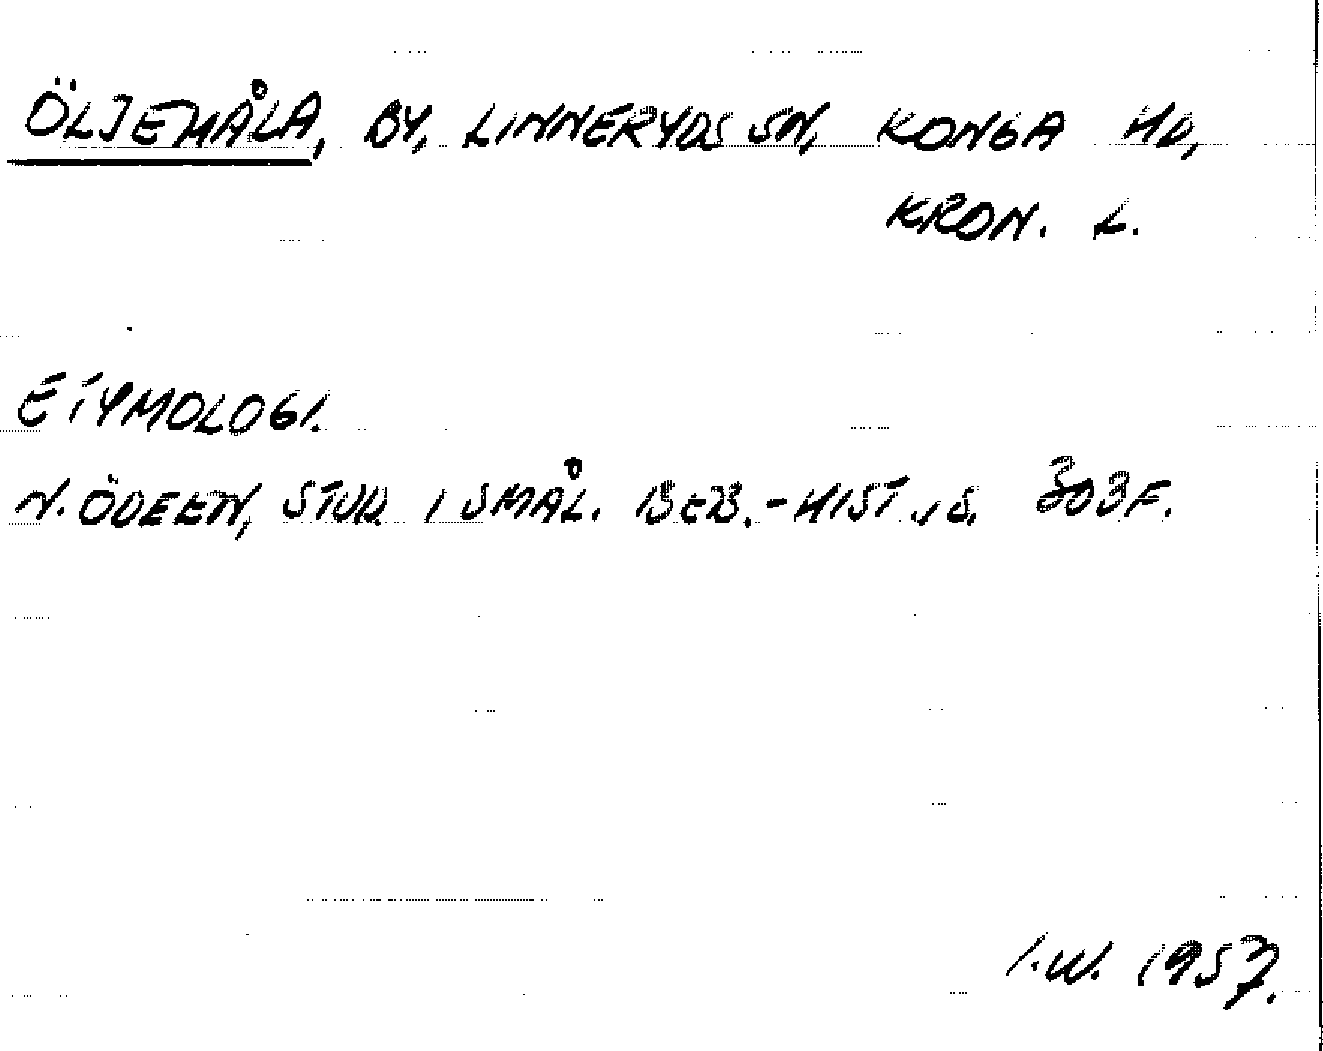 ÖLJEMÅLA, BY, LINNERYDS SN, KONGA HD,
KRON. L.
ETYMOLOGI.
N. ÖDEEN, STUD. I SMÅL. BEB.-HIST. S. 303 F.
I.W. 1957.